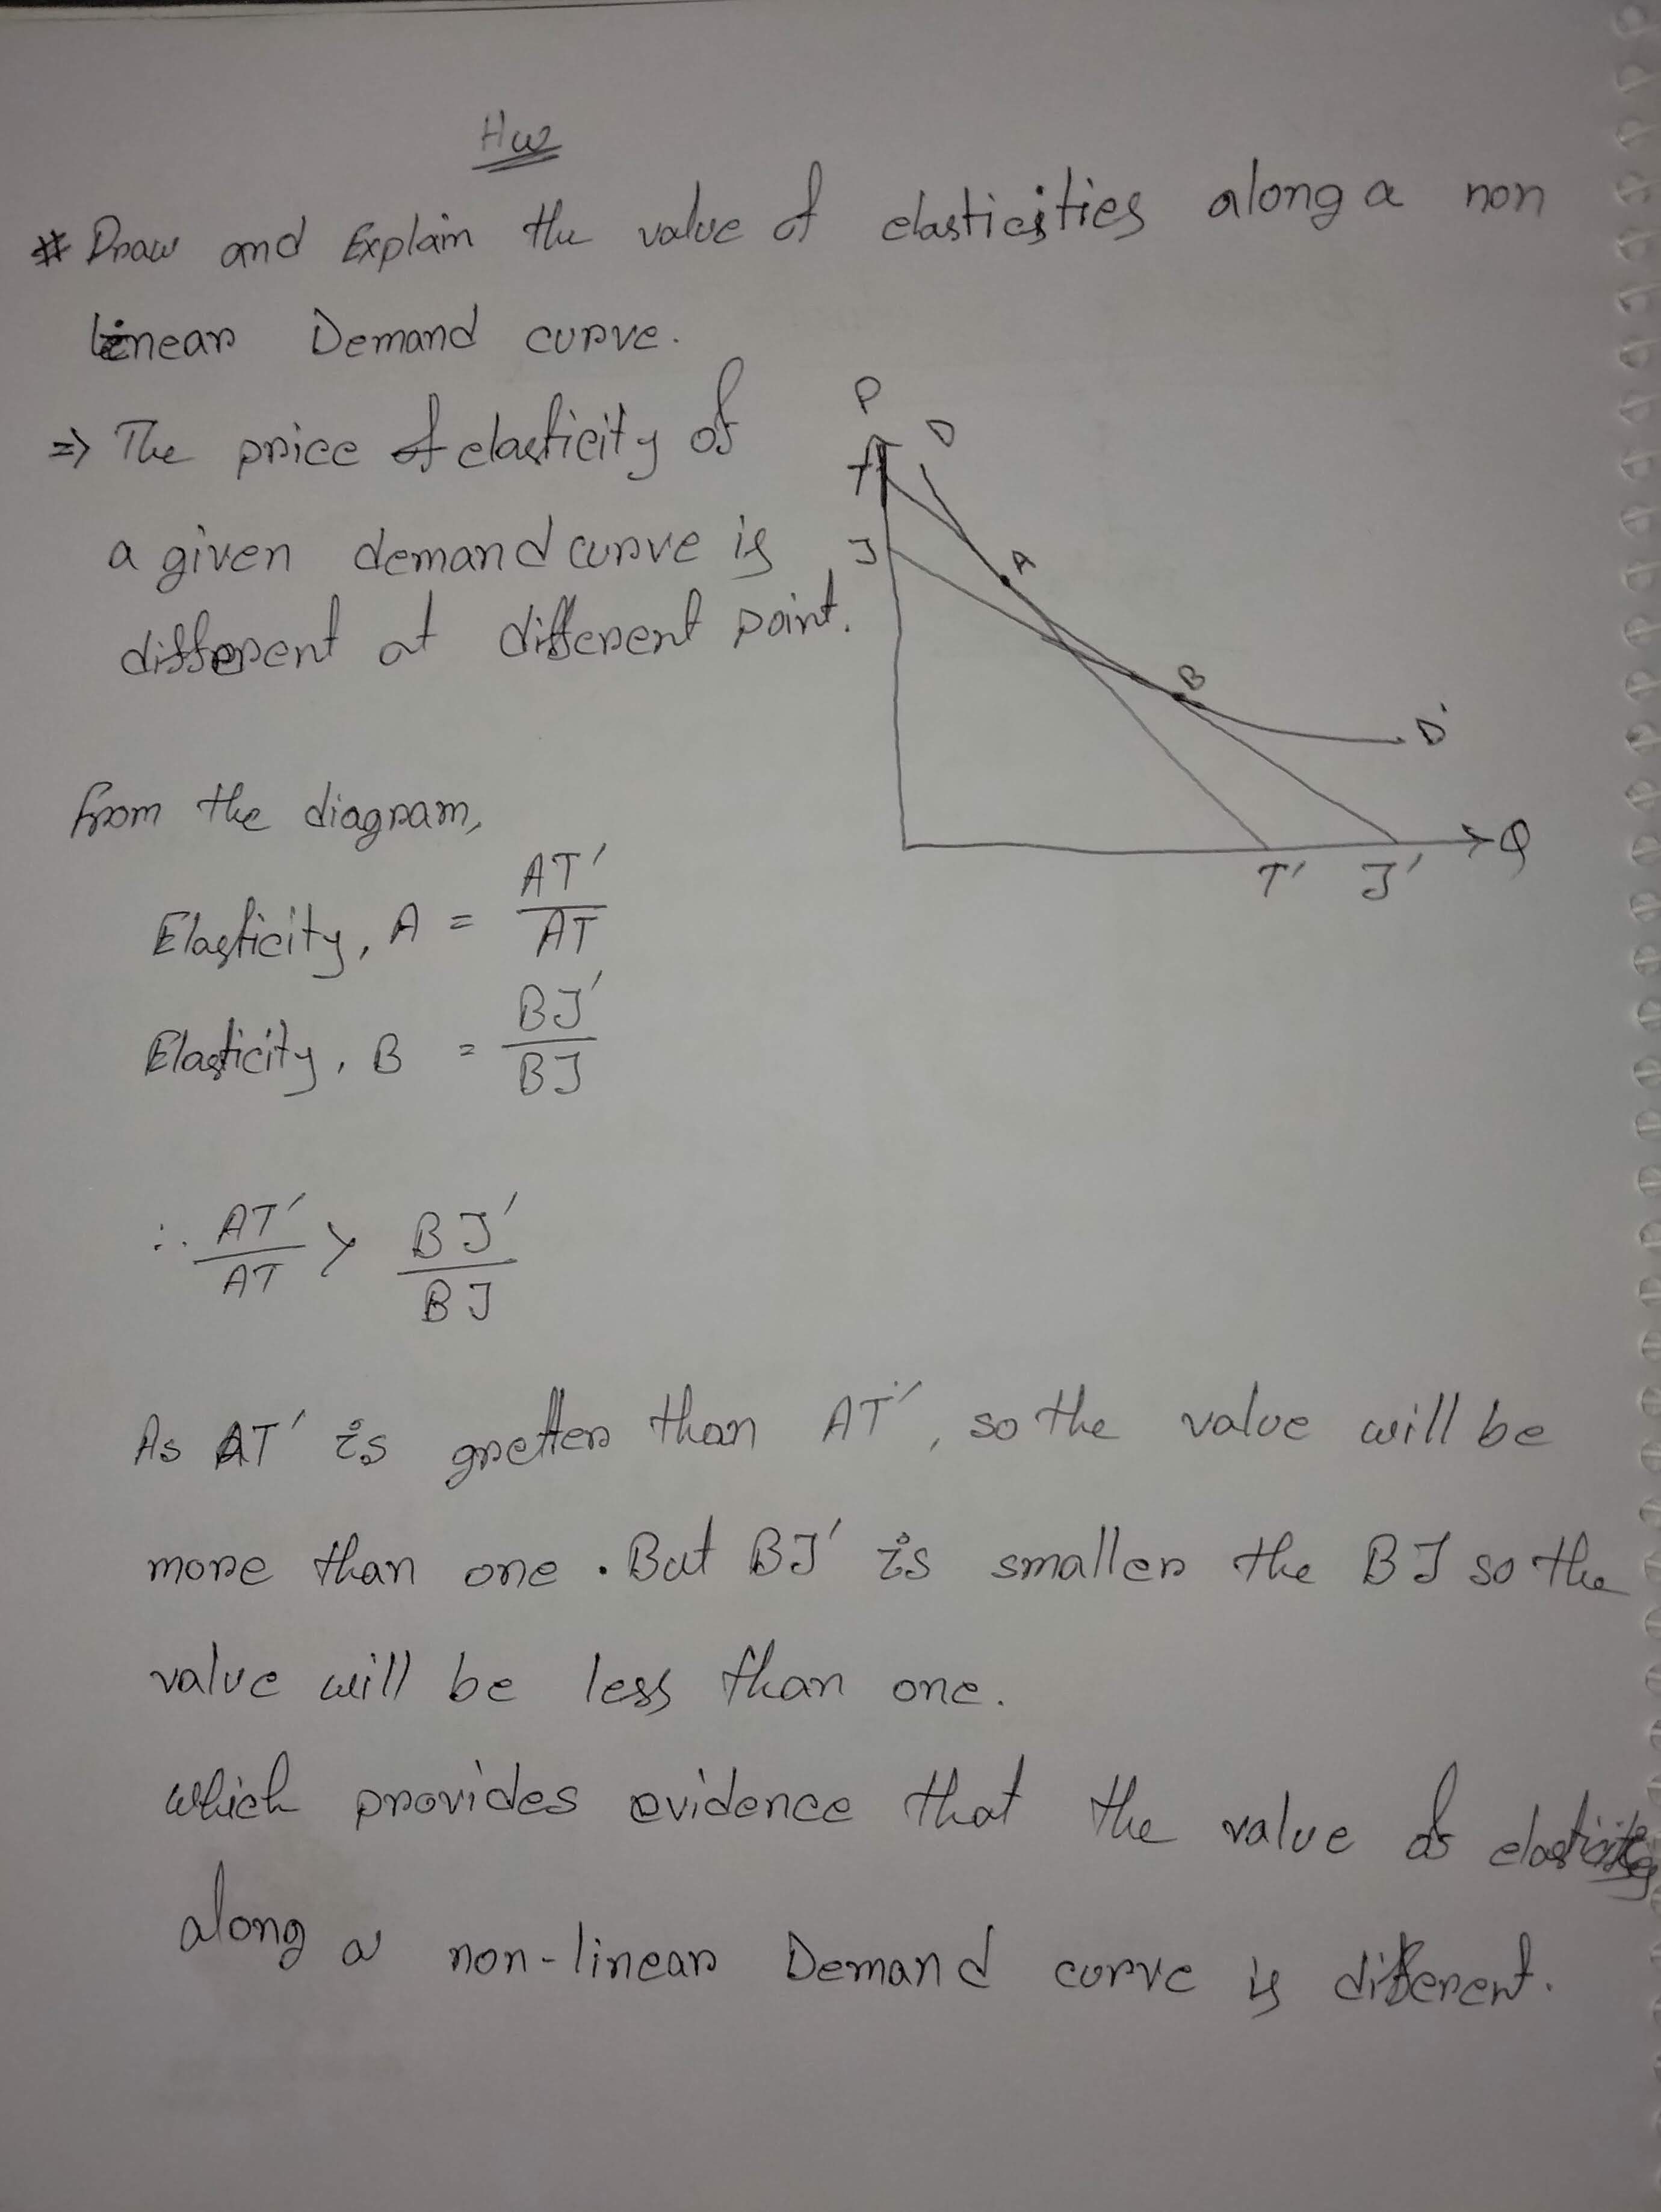 Hw
* Draw and Explain the value of elasticities along a non
linear Demand curve.
⇒ The price of elasticity of
a given demand curve is
different at different point.
P
D
T
J
A
B
D'
Q
T' J'
from the diagram,
Elasticity, A = AT' / AT
Elasticity, B = BJ' / BJ
∴ AT' / AT > BJ' / BJ
As AT' is gretter than AT', so the value will be
more than one. But BJ' is smaller the BJ so the
value will be less than one.
which provides evidence that the value of elasticity
along a non-linear Demand curve is different.